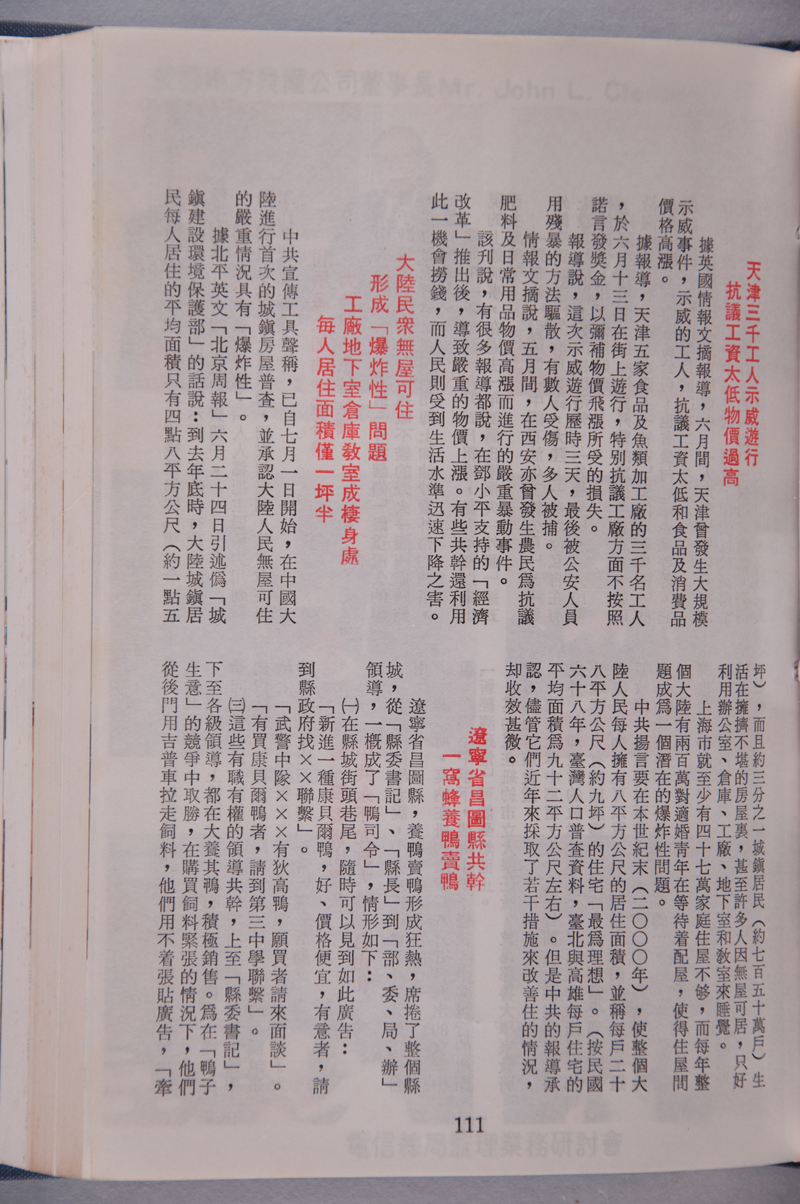 天津三千工人示威遊行
抗議工資太低物價過高
據英國情報文摘報導，六月間，天津曾發生大規模
示威事件，示威的工人，抗議工資太低和食品及消費品
價格高漲。
據報導，天津五家食品及魚類加工廠的三千名工人
，於六月十三日在街上遊行，特別抗議工廠方面不按照
諾言發獎金，以彌補物價飛漲所受的損失。
報導說，這次示威遊行歷時三天，最後被公安人員
用殘暴的方法驅散，有數人受傷，多人被捕。
情報文摘說，五月間，在西安亦曾發生農民爲抗議
肥料及日常用品物價高漲而進行的嚴重暴動事件。
該刊說，有很多報導都說，在鄧小平支持的「經濟
改革」推出後，導致嚴重的物價上漲。有些共幹還利用
此一機會撈錢，而人民則受到生活水準迅速下降之害。
大陸民衆無屋可住
形成「爆炸性」問題
工廠地下室倉庫教室成棲身處
每人居住面積僅一坪半
中共宣傳工具聲稱，已自七月一日開始，在中國大
陸進行首次的城鎭房屋普查，並承認大陸人民無屋可住
的嚴重情況具有「爆炸性」。
據北平英文「北京周報」六月二十四日引述僞「城
鎭建設環境保護部」的話說：到去年底時，大陸城鎭居
民每人居住的平均面積只有四點八平方公尺（約一點五
坪），而且約三分之一城鎭居民（約七百五十萬戶）生
活在擁擠不堪的房屋裏，甚至許多人因無屋可居，只好
利用辦公室、倉庫、工廠、地下室和教室來睡覺。
上海市就至少有四十七萬家庭住屋不够，而每年整
個大陸有兩百萬對適婚青年在等待着配屋，使得住屋問
題成爲一個潛在的爆炸性問題。
中共揚言要在本世紀末（二〇〇〇年），使整個大
陸人民每人擁有八平方公尺的居住面積，並稱每戶二十
八平方公尺（約九坪）的住宅「最爲理想」。（按民國
六十八年，臺灣人口普查資料，臺北與高雄每戶住宅的
平均面積爲九十二平方公尺左右）。但是中共的報導承
認，儘管它們近年來採取了若干措施來改善住的情況，
却收效甚微。
遼寧省昌圖縣共幹
一窩蜂養鴨賣鴨
遼寧省昌圖縣，養鴨賣鴨形成狂熱，席捲了整個縣
城，從「縣委書記」、「縣長」到「部、委、局、辦」
領導，一概成了「鴨司令」，情形如下：
㈠在縣城街頭巷尾，隨時可以見到如此廣告：
「新進一種康貝爾鴨，好、價格便宜，有意者，請
到縣政府找××聯繫」。
「武警中隊×××有狄高鴨，願買者請來面談」。
「有買康貝爾鴨者，請到第三中學聯繫」。
㈢這些有職有權的領導共幹，上至「縣委書記」，
下至各級領導，都在大養其鴨，積極銷售。爲在「鴨子
生意」的競爭中取勝，在購買飼料緊張的情況下，他們
從後門用吉普車拉走飼料，他們用不着張貼廣告，「牽
111